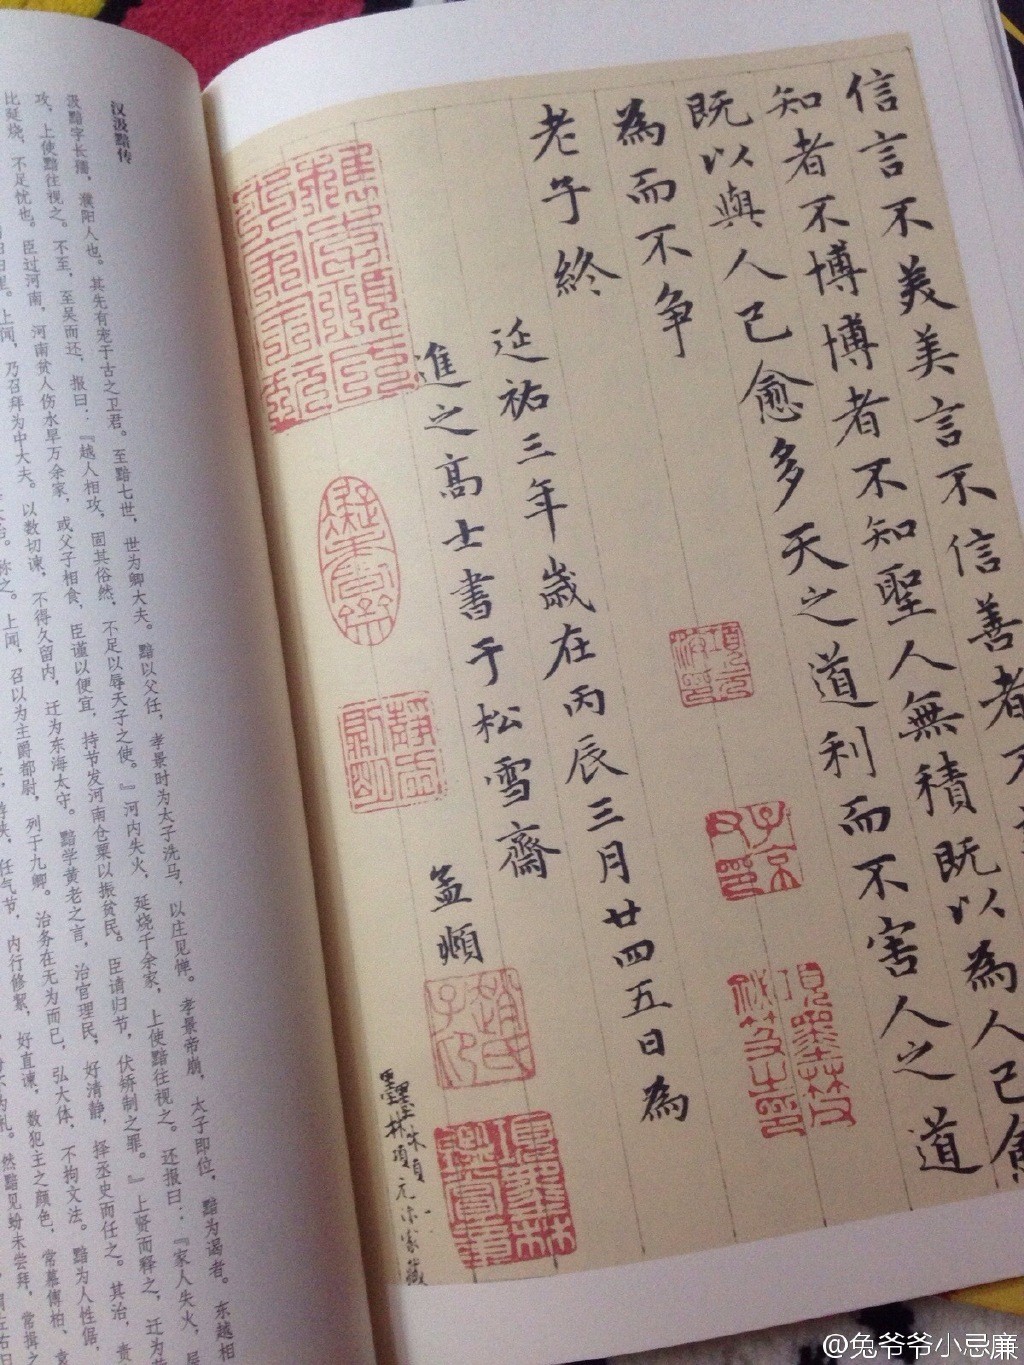 信言不美美言不信善者不
知者不博博者不知聖人無積既以為人己愈
既以與人己愈多天之道利而不害人之道
為而不争
老子終
延祐三年歲在丙辰三月廿四五日為
進之高士書于松雪齋 孟頫
項元汴印
子京父印
趙氏子昂
汉汲黯传
汲黯字长孺，濮阳人也。其先有宠于古之卫君。至黯七世，世为卿大夫。黯以父任，孝景时为太子洗马，以庄见惮。孝景帝崩，太子即位，黯为谒者。东越相
攻，上使黯往视之。不至，至吴而还，报曰：『越人相攻，固其俗然，不足以辱天子之使。』河内失火，延烧千余家，上使黯往视之。还报曰：『家人失火，屋
比延烧，不足忧也。臣过河南，河南贫人伤水旱万余家，或父子相食，臣谨以便宜，持节发河南仓粟以振贫民。臣请归节，伏矫制之罪。』上贤而释之，迁为
归里。上闻，乃召拜为中大夫。以数切谏，不得久留内，迁为东海太守。黯学黄老之言，治官理民，好清静，择丞史而任之。其治，责
称之。上闻，召以为主爵都尉，列于九卿。治务在无为而已，弘大体，不拘文法。黯为人性倨，
任气节，内行修絜，好直谏，数犯主之颜色，常慕傅柏、袁
然黯见蚡未尝拜，常揖之
@兔爷爷小忌廉